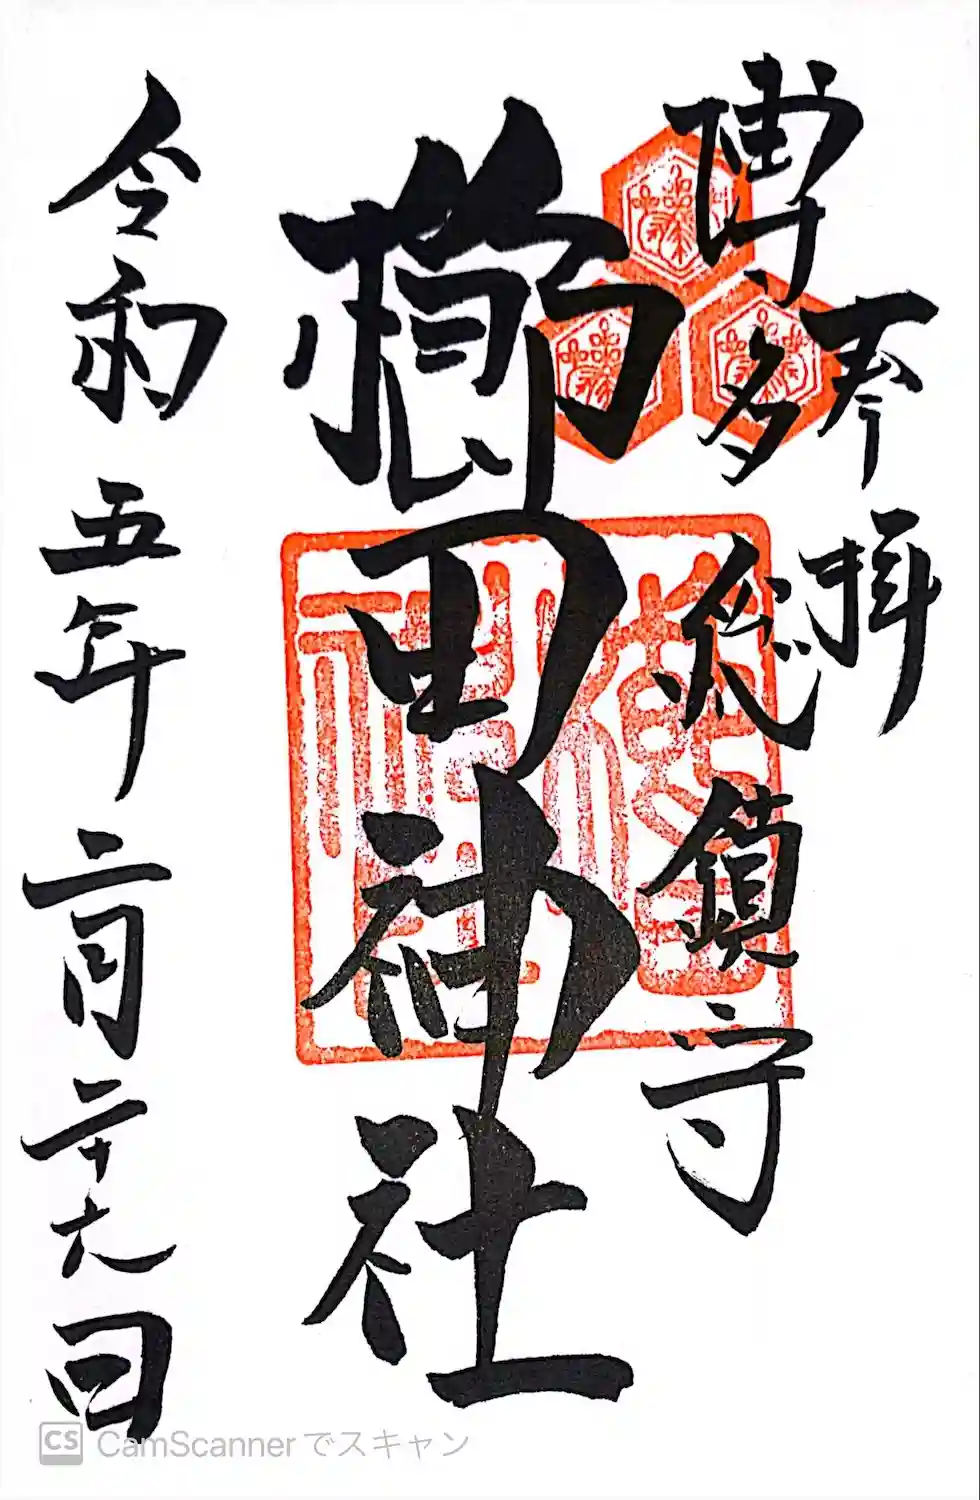 奉拝
博多総鎮守
櫛田神社
令和五年二月二十六日
櫛田神社
CS CamScannerでスキャン